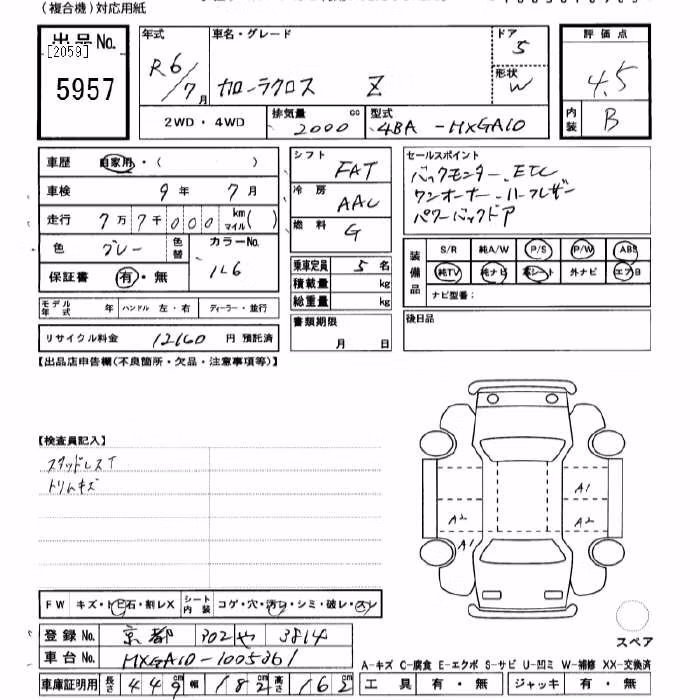 (複合機)対応用紙
出品No.
[2059]
5957
年式
R6/7月
車名・グレード
カローラクロス Z
ドア
5
形状
W
評価点
4.5
内装
B
2WD・4WD
排気量
2000 cc
型式
4BA-MXGA10
車歴 自家用・( )
車検 9年 7月
走行 7万7千000 km マイル( )
色 グレー 色替
カラーNo.
1L6
保証書 有・無
シフト
FAT
冷房
AAC
燃料
G
乗車定員 5名
積載量 kg
総重量 kg
書類期限
月 日
セールスポイント
バックモニター、ETC
ワンオーナー、ハーフレザー
パワーバックドア
装備品
S/R 純A/W P/S P/W ABS
純TV 純ナビ 革シート 外ナビ エアB
ナビ型番:
後日品
モデル年式 年 ハンドル 左・右 ディーラー・並行
リサイクル料金 12160 円 預託済
【出品店申告欄(不良箇所・欠品・注意事項等)】
【検査員記入】
スタッドレスT
トリムキズ
A1
A2
A2
A1
スペア
FW キズ・トビ石・割レX シート内装 コゲ・穴・汚レ・シミ・破レ・スレ
登録No. 京都 302 や 3814
車台No. MXGA10-1005361
車庫証明用 長さ 449cm 幅 182cm 高さ 162cm
A-キズ C-腐食 E-エクボ S-サビ U-凹ミ W-補修 XX-交換済
工具 有・無 ジャッキ 有・無